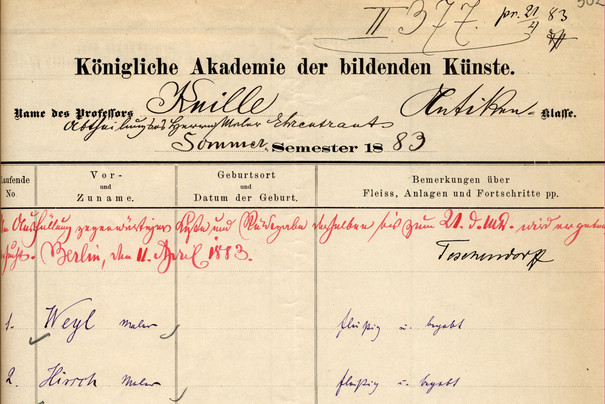 II 377. pr. 21/4 83
Königliche Akademie der bildenden Künste.
Name des Professors Knille Antiken-Klasse.
Abtheilung des Herrn Maler Ehrentraut
Sommer-Semester 1883
laufende No. Vor- und Zuname. Geburtsort und Datum der Geburt. Bemerkungen über Fleiss, Anlagen und Fortschritte pp.
Ausfüllung gegenwärtiger Liste und Rückgabe derselben bis zum 21. d. Mts. wird
Berlin, den 11. April 1883. Teschendorff
1. Weyl Maler fleißig u. begabt
2. Hirsch Maler fleißig u. begabt